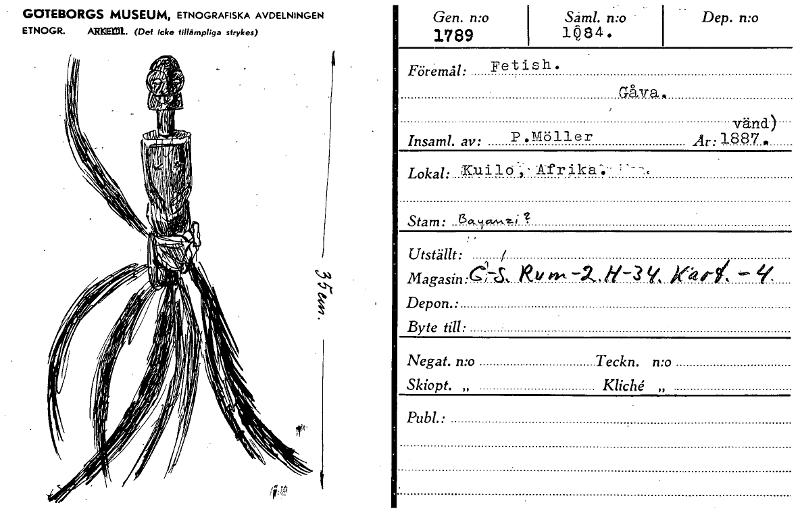 GÖTEBORGS MUSEUM, ETNOGRAFISKA AVDELNINGEN
ETNOGR. ARKEOL. (Det icke tillämpliga strykes)
35 cm.
Gen. n:o Saml. n:o Dep. n:o
1789 1084.
Föremål: Fetish.
Gåva.
vänd)
Insaml. av: P.Möller År: 1887.
Lokal: Kuilo, Afrika.
Stam: Bayanzi?
Utställt:
Magasin: C-S. Rum-2. H-34. Kart. - 4.
Depon.:
Byte till:
Negat. n:o Teckn. n:o
Skiopt. „ Kliché „
Publ.: